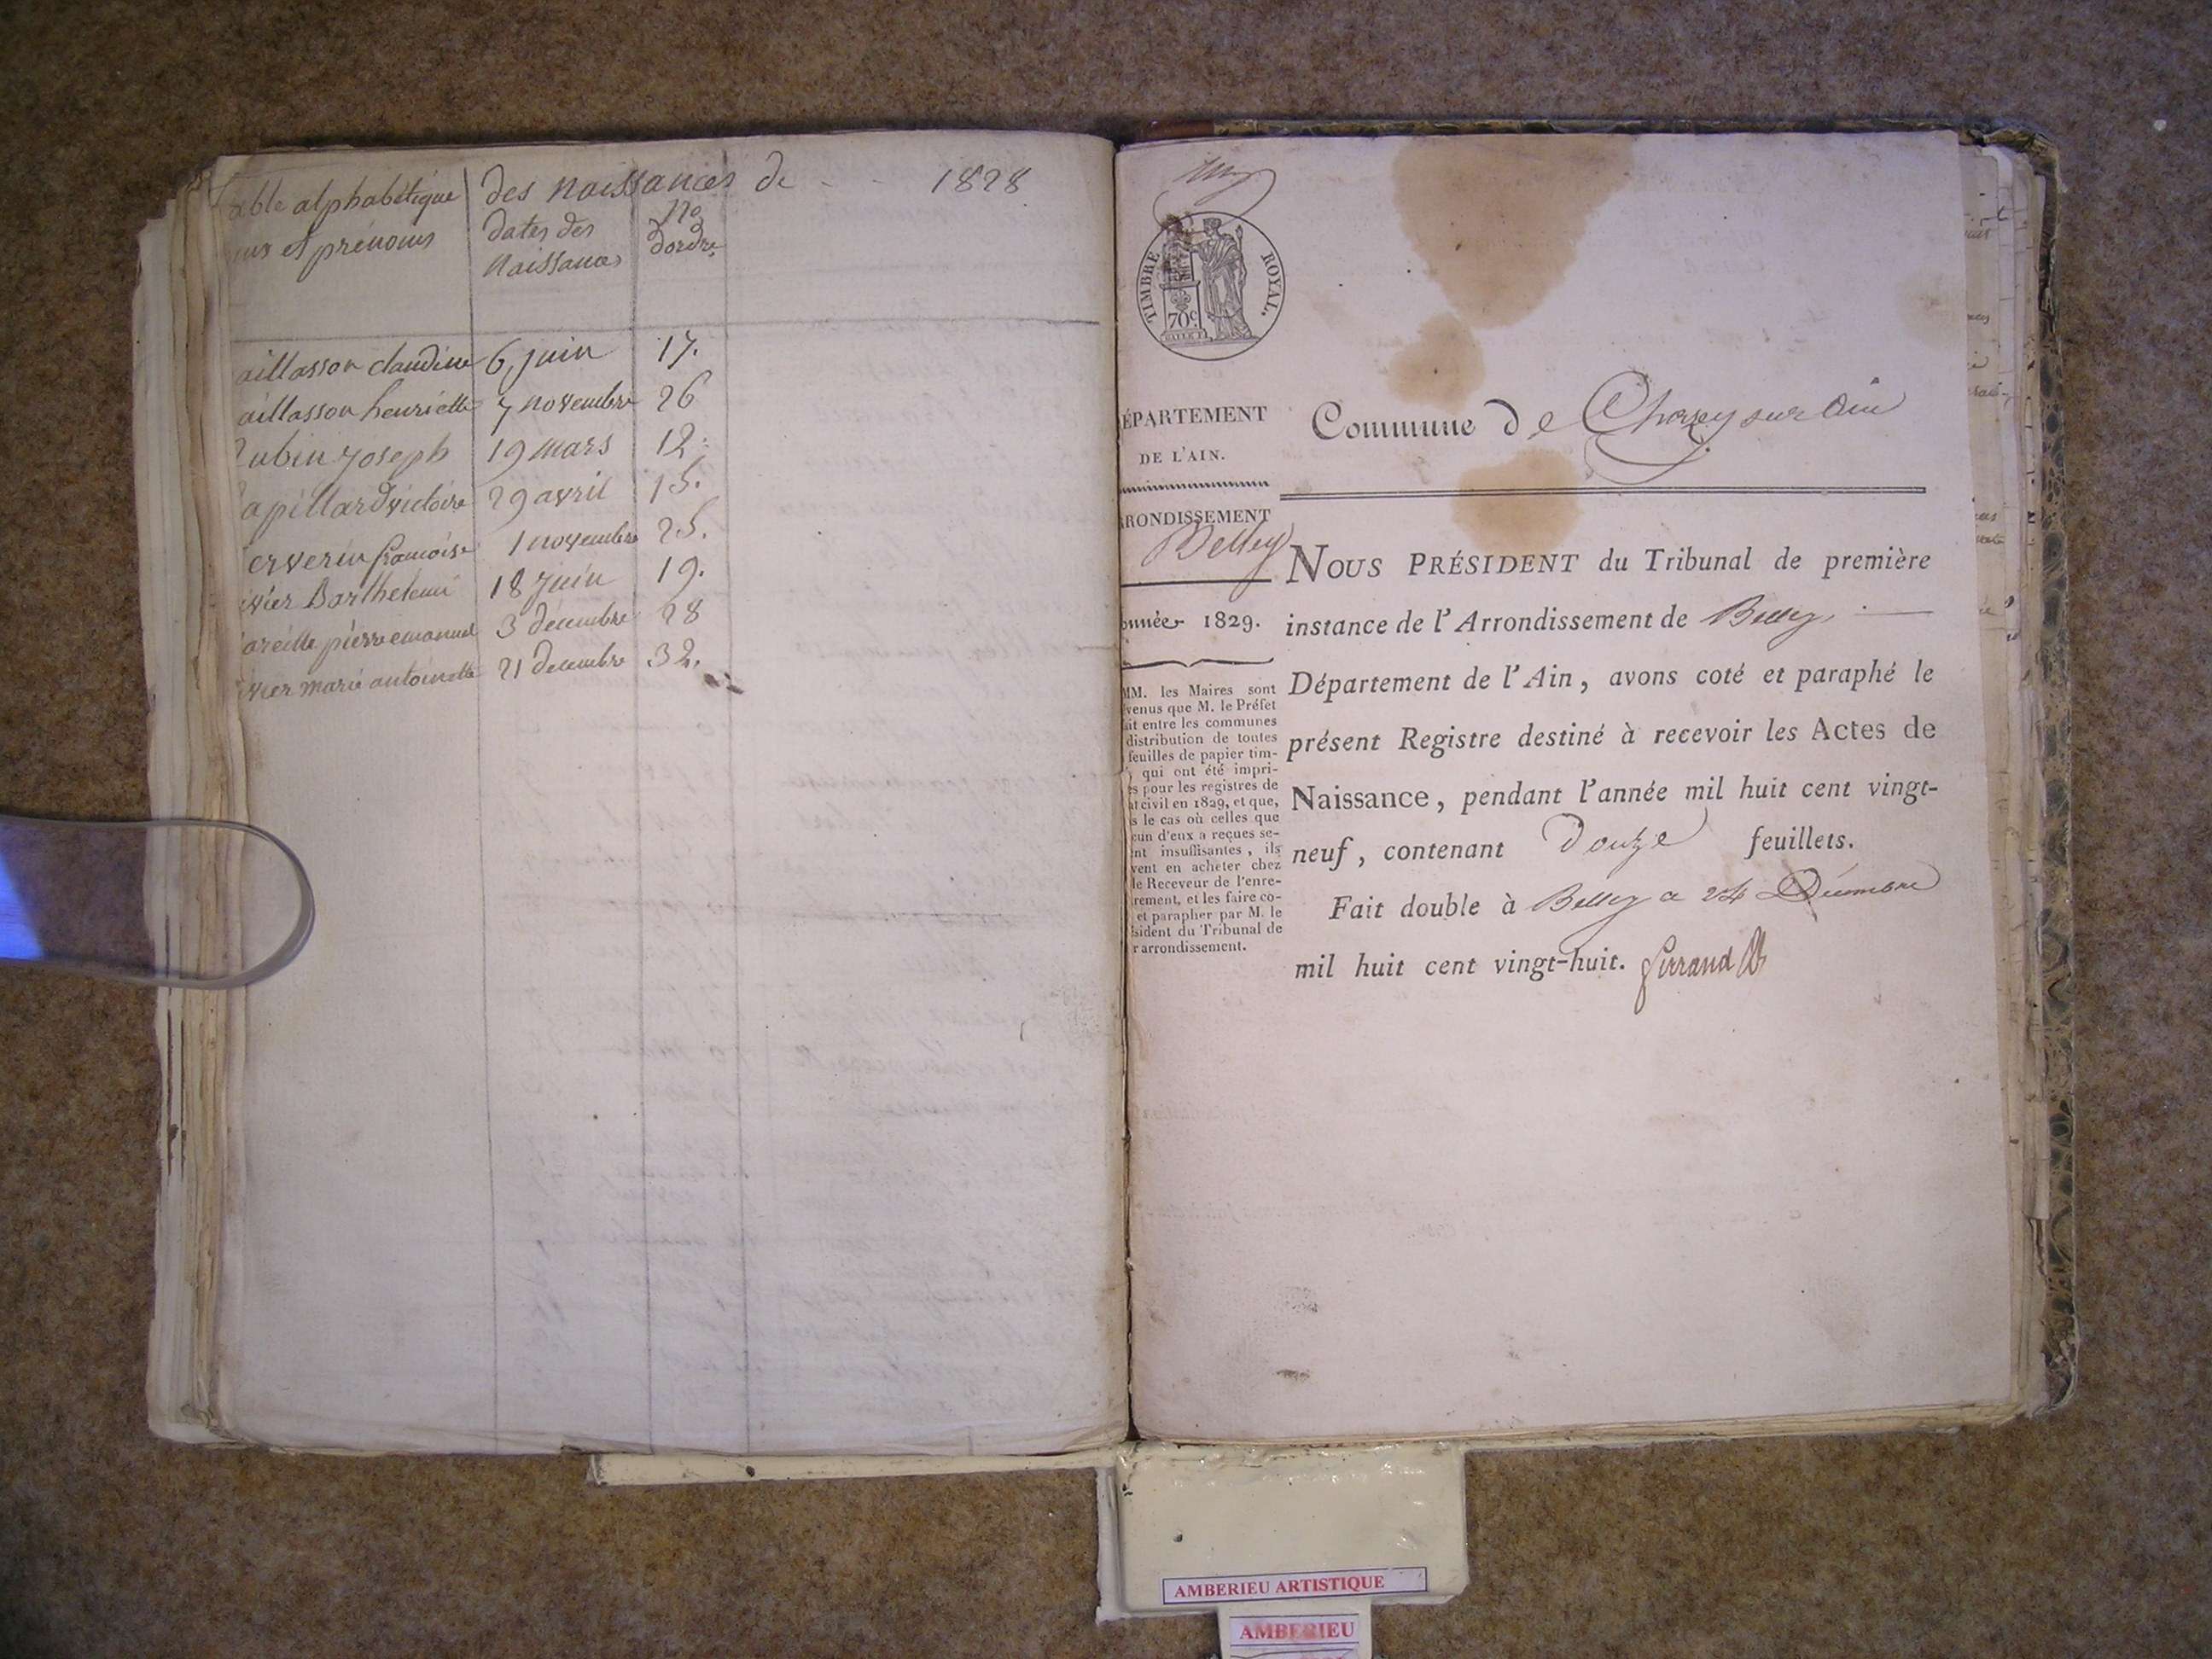 able alphabétique des naissances de - - 1828
ms et prénoms
dates des
naissances
no
dordre
aillasson claudine 6 juin 17.
aillasson henriette 7 novembre 26
ubin joseph 19 mars 12.
apillard victoire 29 avril 15.
erverin francoise 1 novembre 25.
ivier Barthelemi 18 juin 19.
areille pierre emanuel 3 décembre 28
ivier marie antoinette 21 decembre 32.
TIMBRE ROYAL.
70c
ÉPARTEMENT
DE L'AIN.
RONDISSEMENT
Belley
année 1829.
MM. les Maires sont
venus que M. le Préfet
ait entre les communes
distribution de toutes
feuilles de papier tim-
qui ont été impri-
es pour les registres de
at civil en 1829, et que,
s le cas où celles que
cun d'eux a reçues se-
ent insuffisantes, ils
vent en acheter chez
le Receveur de l'enre-
rement, et les faire co-
et parapher par M. le
sident du Tribunal de
r arrondissement.
Commune de Chazey sur Ain
NOUS PRÉSIDENT du Tribunal de première
instance de l'Arrondissement de Belley
Département de l'Ain, avons coté et paraphé le
présent Registre destiné à recevoir les Actes de
Naissance, pendant l'année mil huit cent vingt-
neuf, contenant douze feuillets.
Fait double à Belley a 24 Décembre
mil huit cent vingt-huit.
AMBERIEU ARTISTIQUE
AMBERIEU